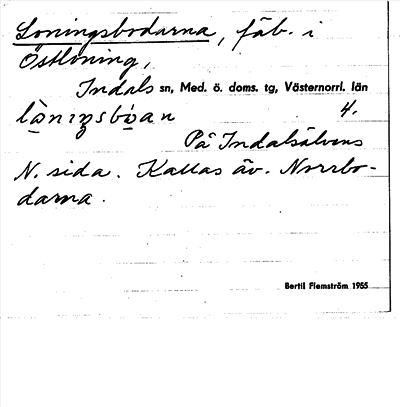 Loningsbodarna, fäb. i
Östloning,
Indals sn, Med. ö. doms. tg, Västernorrl. län
4.
På Indalsälvens
N. sida. Kallas äv. Norrbo-
darna.
Bertil Flemström 1955